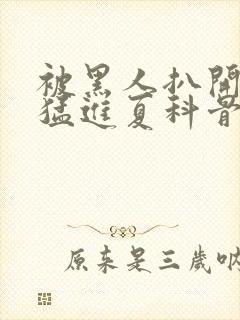 被黑人扒開
猛進夏科
原来是三歲吶